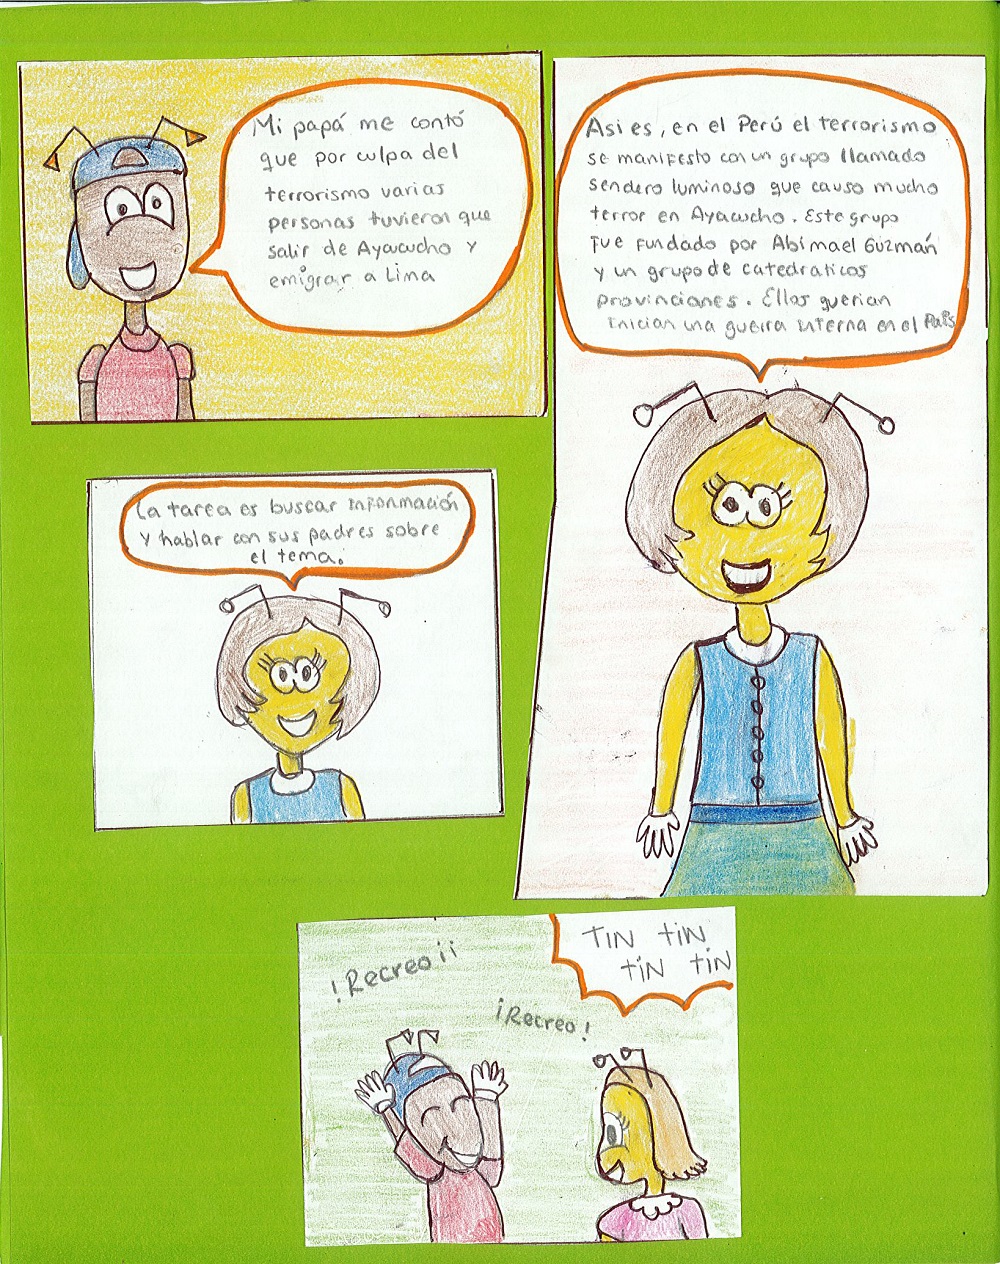 Mi papá me contó
que por culpa del
terrorismo varias
personas tuvieron que
salir de Ayacucho y
emigrar a Lima
Asi es, en el Perú el terrorismo
se manifesto con un grupo llamado
sendero luminoso que causo mucho
terror en Ayacucho. Este grupo
fue fundado por Abimael Guzmán
y un grupo de catedraticos
provinciones. Ellos querian
inician una guerra interna en el País
La tarea es buscar información
y hablar con sus padres sobre
el tema.
TIN tIN
tIN tIN
¡Recreo¡¡
¡Recreo!